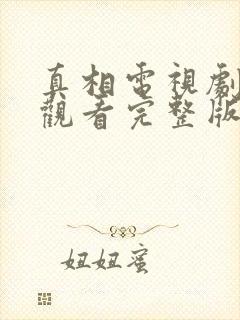 真相電視劇
觀看完整版
妞妞蜜